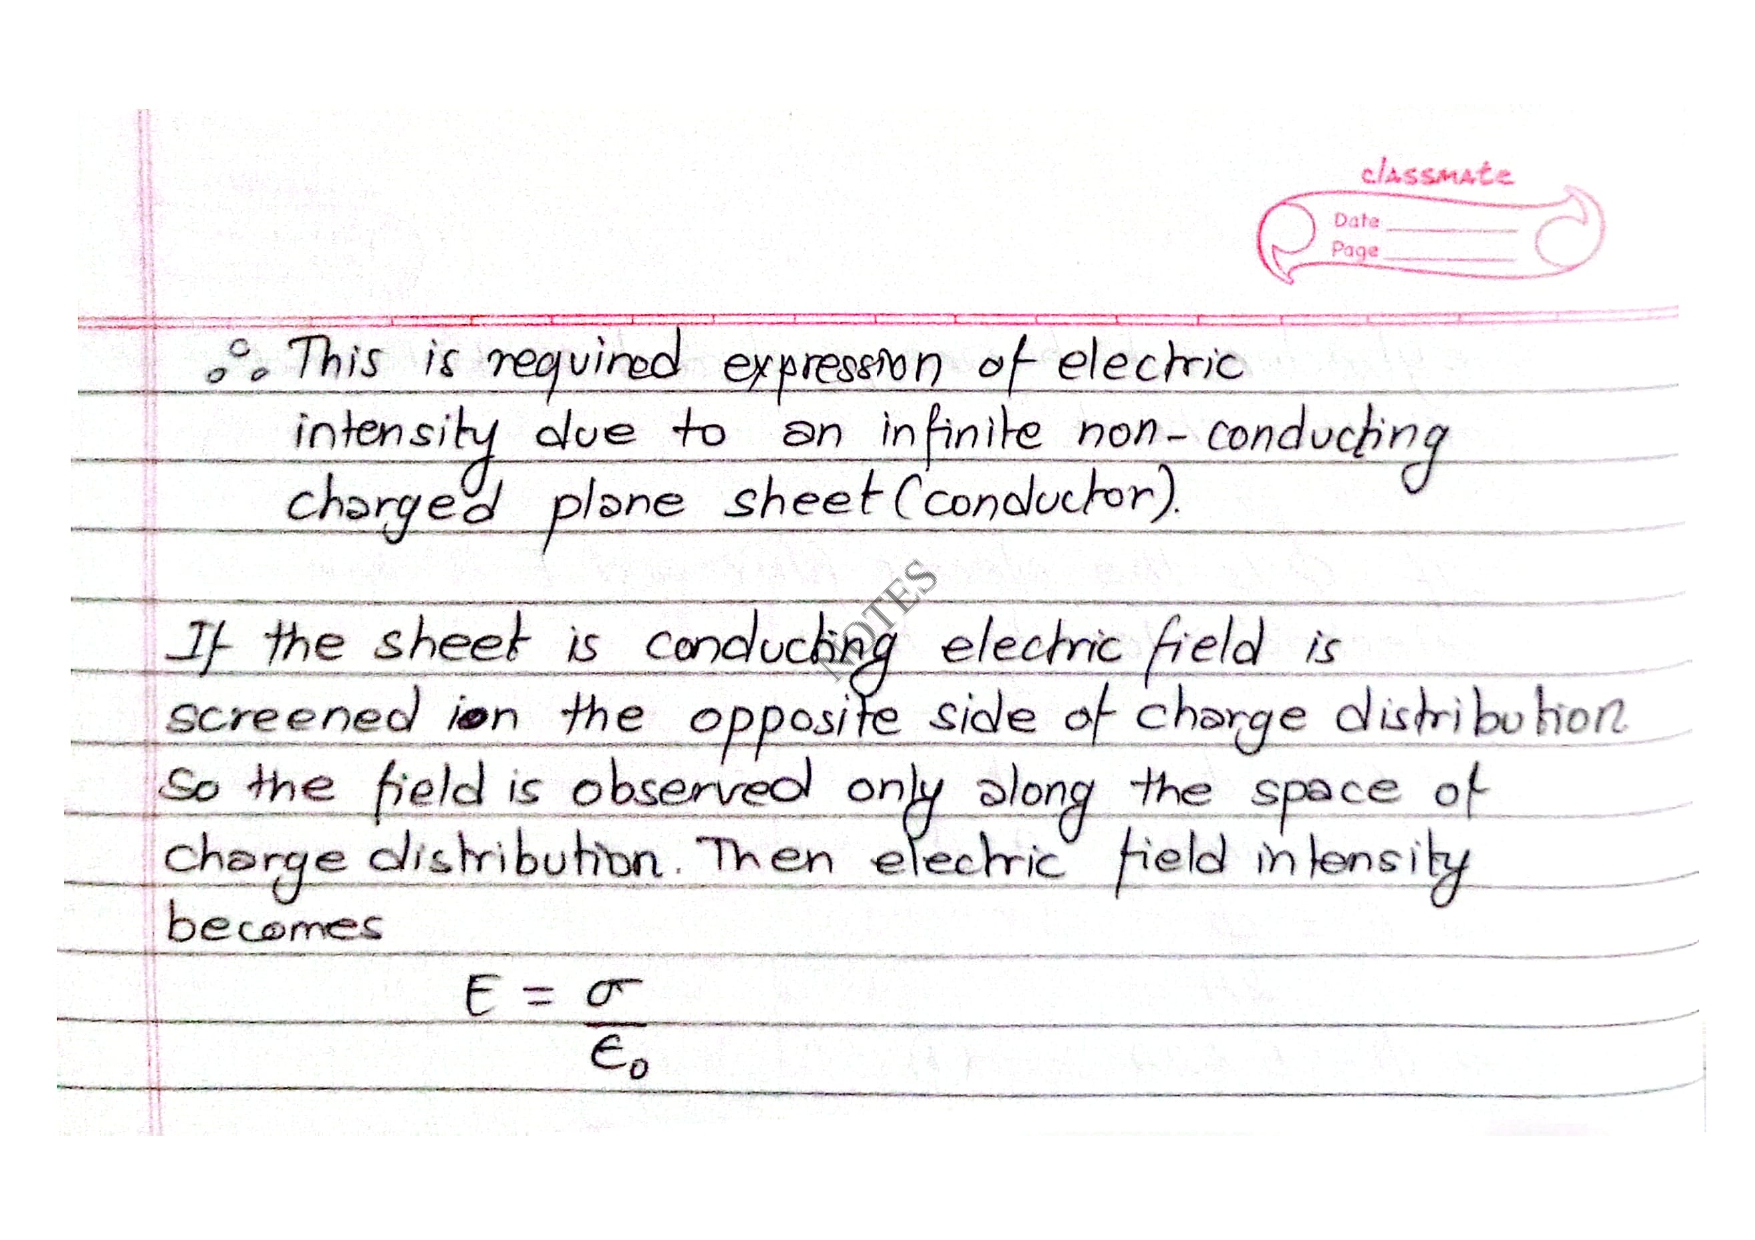 classmate
Date
Page
∴ This is required expression of electric
intensity due to an infinite non-conducting
charged plane sheet (conductor).
NOTES
If the sheet is conducting electric field is
screened ion the opposite side of charge distribution
So the field is observed only along the space of
charge distribution. Then electric field intensity
becomes
E = σ
ϵ₀